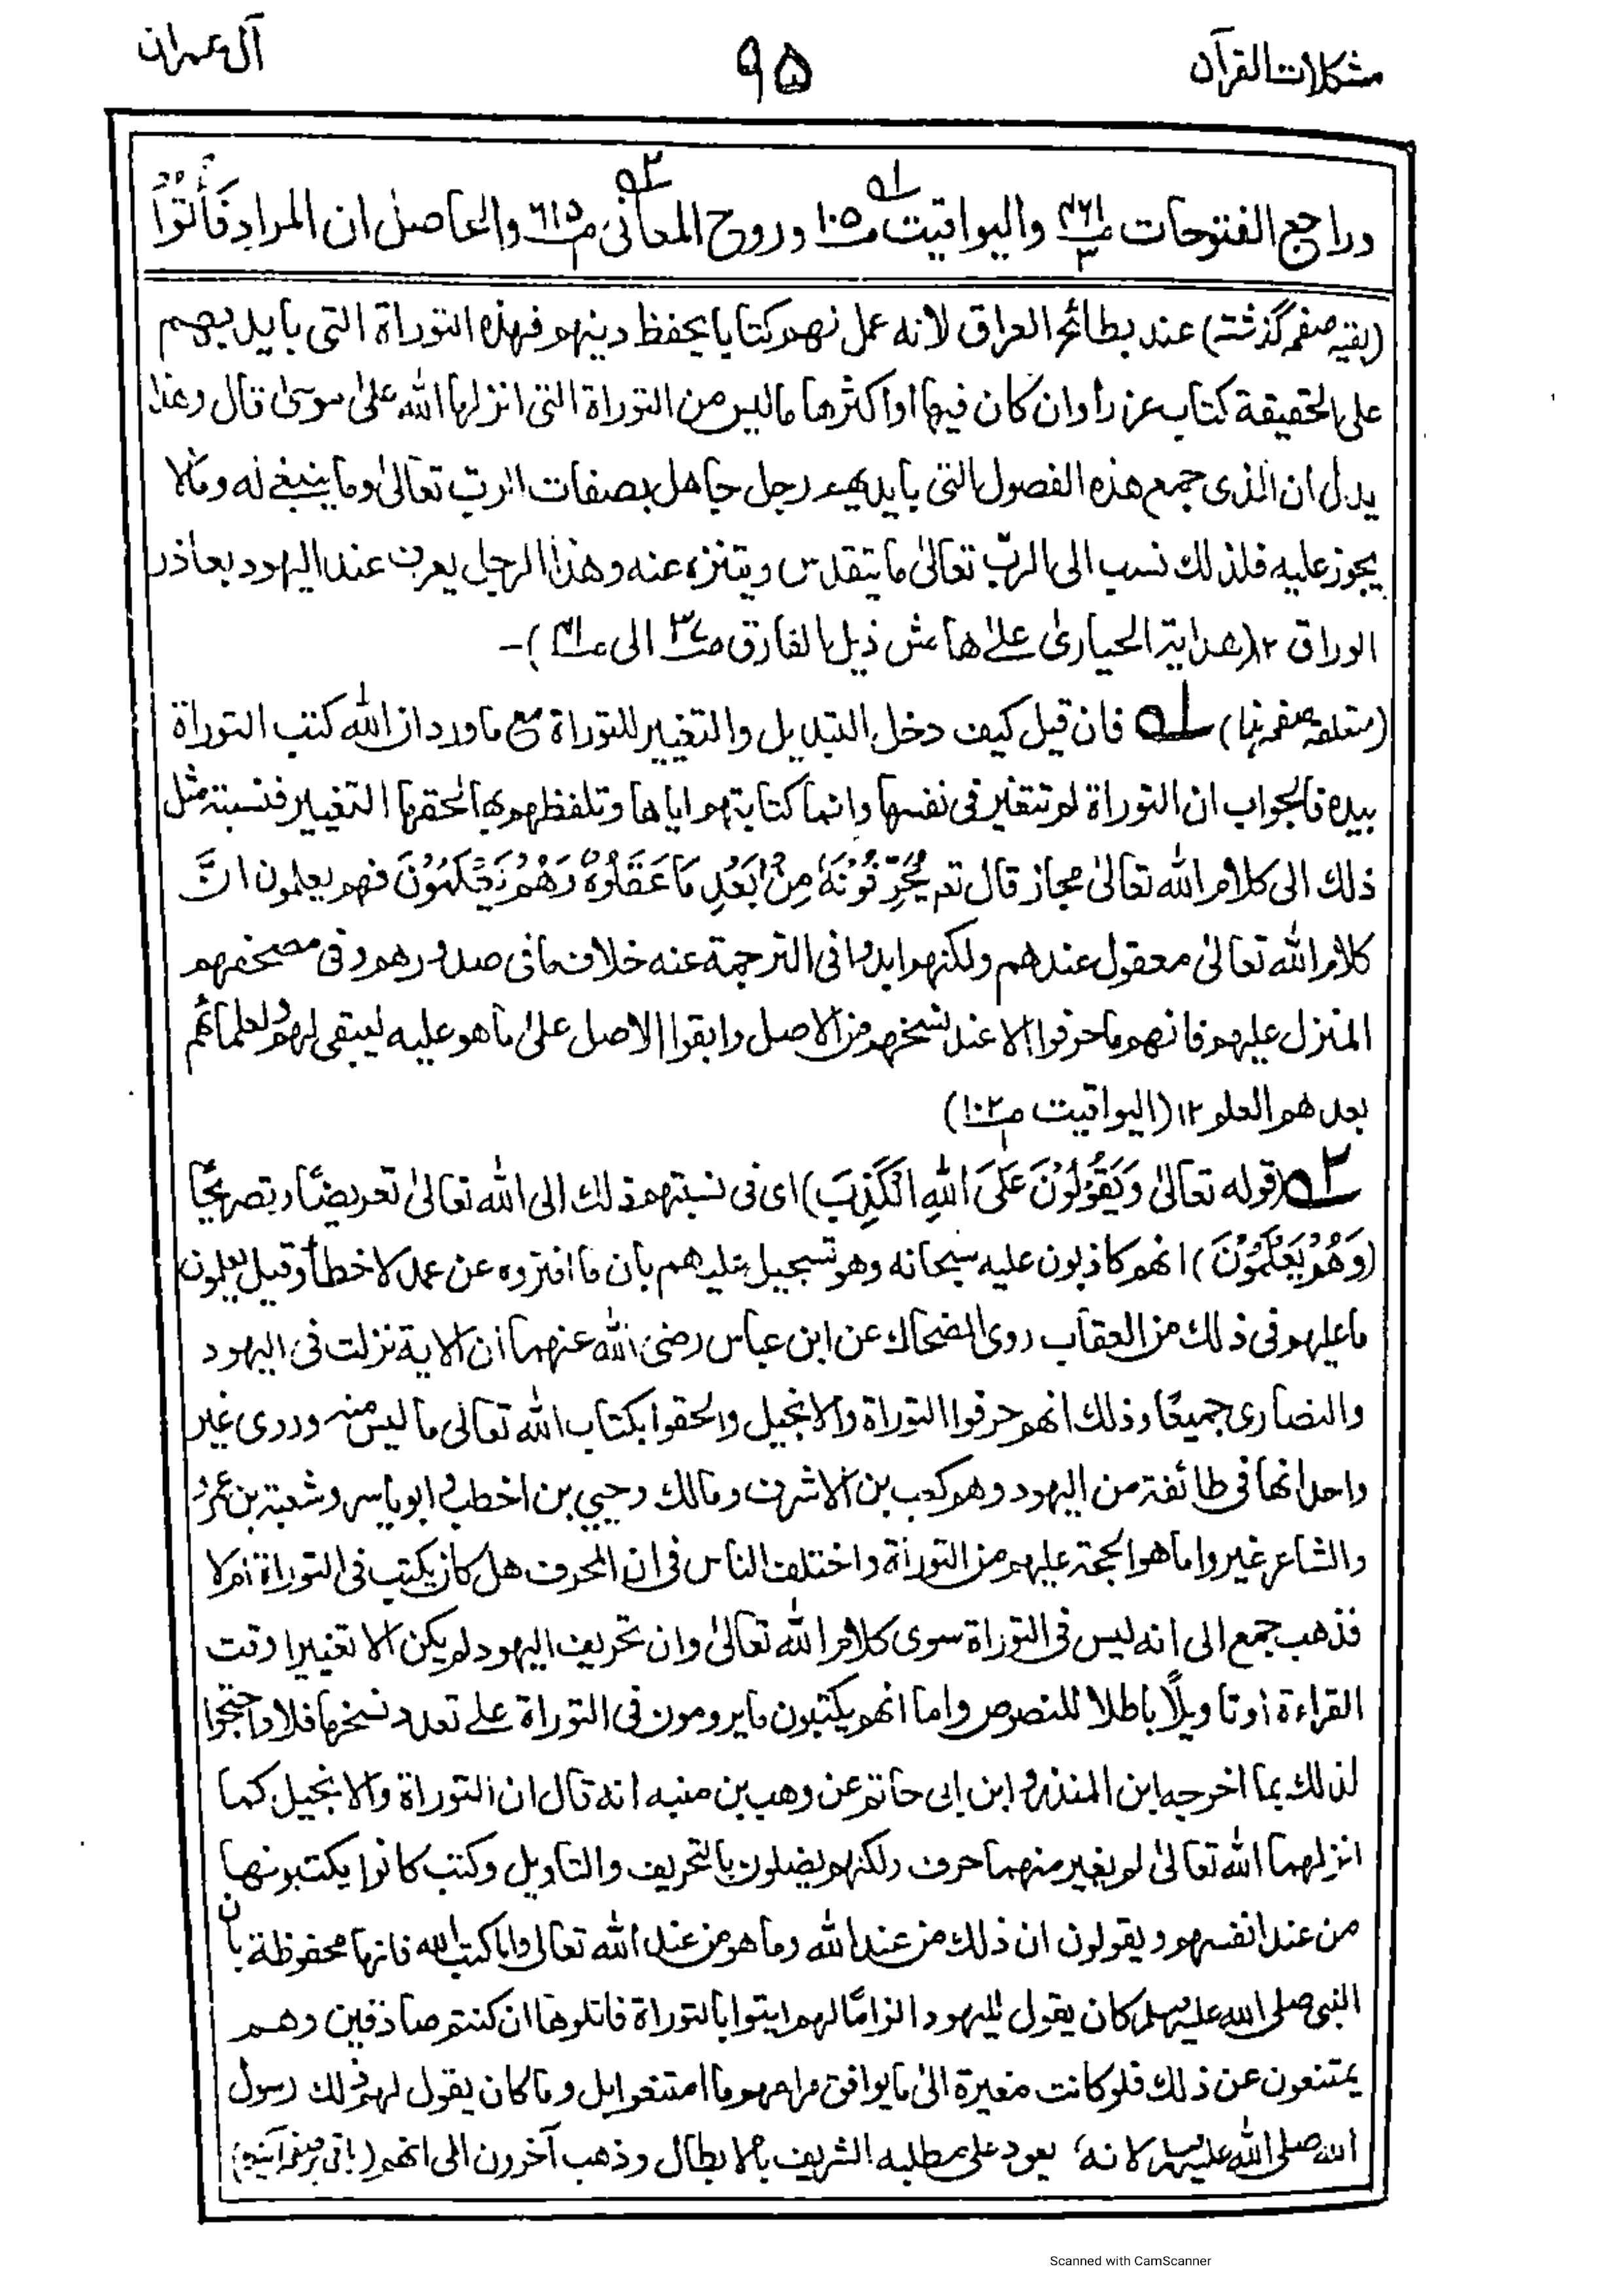 مشكلات القرآن
٩٥
آل عمران
وراجع الفتوحات واليواقيت م١٠٥ وروح المعانى م٦١٥ والحاصل ان المراد فَأْتُوْا
(بقيہ صفحہ گذشتہ) عند بطائح العراق لانه عمل لهم كتابا يحفظ دينهم فهذه التوراة التى بايديهم
على الحقيقة كتاب عزرا وان كان فيها او اكثرها ما ليس من التوراة التى انزلها الله على موسىٰ قال وهذا
يدل ان الذى جمع هذه الفصول التى بايديهم رجل جاهل بصفات الرب تعالىٰ وما ينبغى له وما لا
يجوز عليه فلذلك نسب الى الربّ تعالىٰ ما يتقدس ويتنزه عنه وهذا الرجل يعرف عند اليهود بعاذر
الوراق ١٢ (هداية الحيارىٰ علىٰ هامش ذيل الفارق الى)-
(متعلقہ صفحہ ہذا) لـه فان قيل كيف دخل التبديل والتغيير للتوراة مع ما ورد ان الله كتب التوراة
بيده فالجواب ان التوراة لم تتغير فى نفسها وانما كتابتهم اياها وتلفظهم بها لحقها التغيير فنسبة مثل
ذلك الى كلام الله تعالىٰ مجاز قال تعـ يُحَرِّفُوْنَهٗ مِنْۢ بَعْدِ مَا عَقَلُوْهُ وَهُمْ يَعْلَمُوْنَ فهم يعلمون انَّ
كلام الله تعالىٰ معقول عندهم ولكنهم ابدوا فى الترجمة عنه خلاف ما فى صدورهم وفى مصحفهم
المنزل عليهم فانهم ما حرفوا الا عند نسخهم من الاصل وابقوا الاصل علىٰ ما هو عليه ليبقى لهم ولعلمائهم
بعدهم العلم ١٢ (اليواقيت م١٠٢)
٢ـه (قوله تعالىٰ وَيَقُوْلُوْنَ عَلَى اللهِ الْكَذِبَ) اى فى نسبتهم ذلك الى الله تعالىٰ تعريضًا وتصريحًا
(وَهُمْ يَعْلَمُوْنَ) انهم كاذبون عليه سبحانه وهو تسجيل عليهم بان ما افتروه عن عمد لا خطأ وقيل يعلمون
ما عليهم فى ذلك من العقاب روى الضحاك عن ابن عباس رضى الله عنهما ان الاية نزلت فى اليهود
والنصارى جميعًا وذلك انهم حرفوا التوراة والانجيل والحقوا بكتاب الله تعالى ما ليس منه وروى غير
واحد انها فى طائفة من اليهود وهم كعب بن الاشرف ومالك وحيي بن اخطب وابو ياسر وشعبة بن عمرو
والشاعر غيروا ما هو الحجة عليهم من التوراة واختلف الناس فى ان المحرف هل كان يكتب فى التوراة ام لا
فذهب جمع الى انه ليس فى التوراة سوى كلام الله تعالىٰ وان تحريف اليهود لم يكن الا تغييرا وقت
القراءة او تاويلًا باطلا للنصوص واما انهم يكتبون ما يرومون فى التوراة على تعدد نسخها فلا واحتجوا
لذلك بما اخرجه ابن المنذر و ابن ابى حاتم عن وهب بن منبه انه قال ان التوراة والانجيل كما
انزلهما الله تعالىٰ لم يغير منهما حرف ولكنهم يضلون بالتحريف والتاويل وكتب كانوا يكتبونها
من عند انفسهم ويقولون ان ذلك من عند الله وما هو من عند الله تعالى واما كتب الله فانها محفوظة بان
النبى صلى الله عليه وسلم كان يقول لليهود الزامًا لهم ايتوا بالتوراة فاتلوها ان كنتم صادقين وهم
يمتنعون عن ذلك فلو كانت مغيرة الىٰ ما يوافق مرامهم ما امتنعوا بل وما كان يقول لهم ذلك رسول
الله صلى الله عليه وسلم لانه يعود على مطلبه الشريف بالابطال وذهب آخرون الى انهم (باقى برصفحہ آئندہ)
Scanned with CamScanner